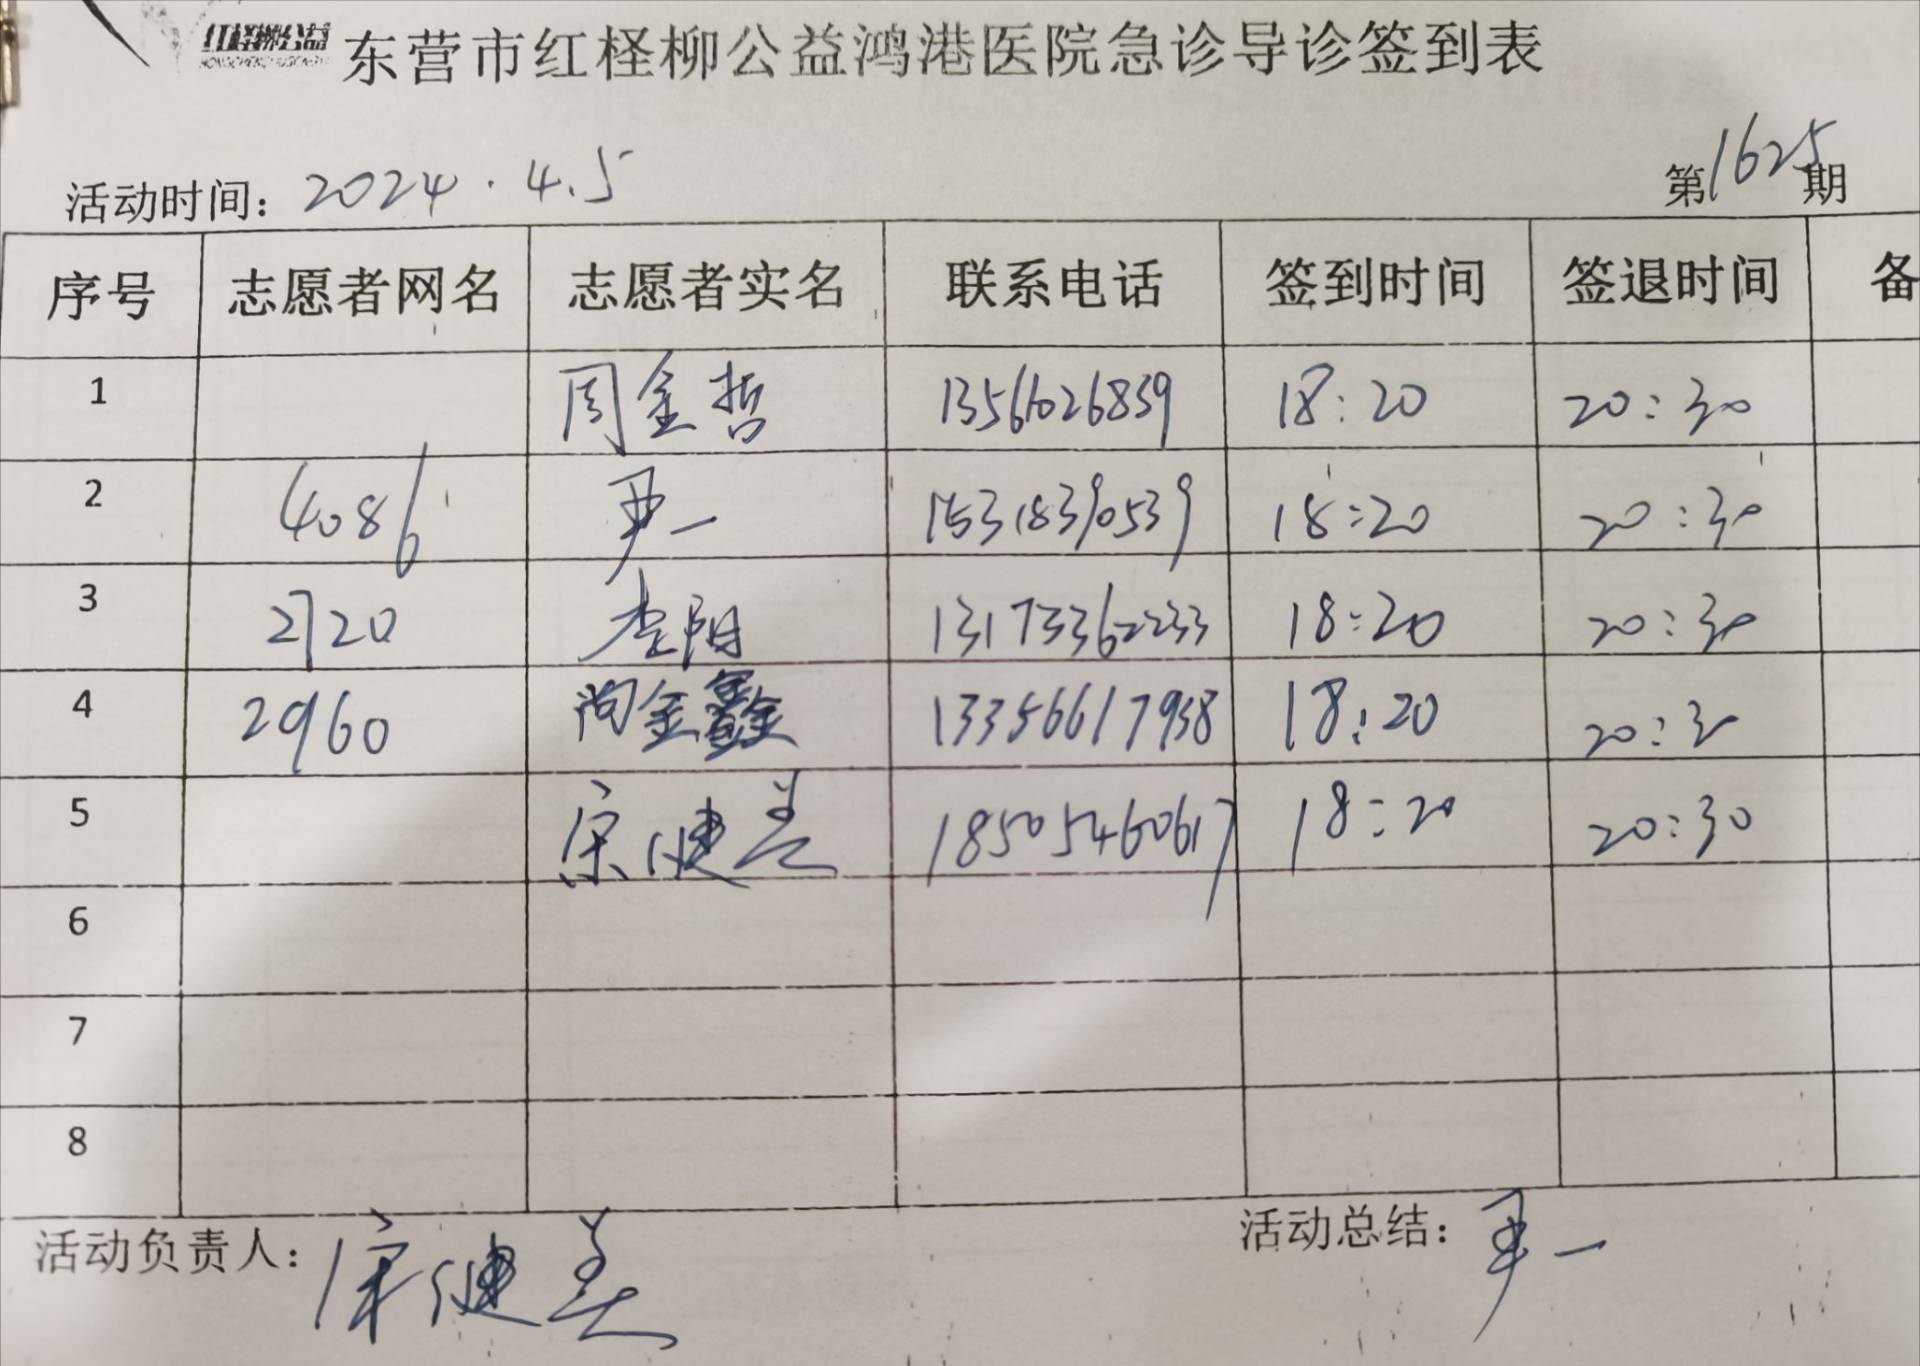 红柽柳公益
东营市红柽柳公益鸿港医院急诊导诊签到表
活动时间：2024.4.5 第1625期
序号 志愿者网名 志愿者实名 联系电话 签到时间 签退时间 备
1 周金哲 13561026839 18:20 20:30
2 4086 尹一 15318390539 18:20 20:30
3 2720 李阳 13173362233 18:20 20:30
4 2960 尚金鑫 13356617938 18:20 20:30
5 宋健美 18505460617 18:20 20:30
6
7
8
活动负责人：宋健美 活动总结：尹一